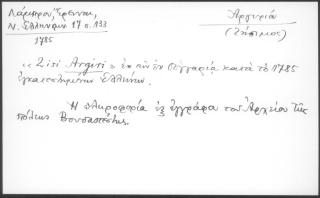 Λάμπρου, Έρευναι,
Ν. Ελληνομν 17 σ. 133
1785
Αργυριά
(Ζήσιμος)
« Zisi Argiri » εκ των εν Ουγγαρία κατά το 1785
εγκατεστημένων Ελλήνων.
Η πληροφορία εξ εγγράφου του Αρχείου της
πόλεως Βουδαπέστης.